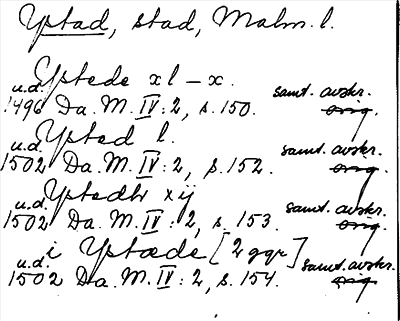 Ystad, stad, Malm. l.
Ystede xl – x.
u.d. samt. avskr.
1496 Da. M. IV: 2, s. 150. orig.
Ysted l.
u.d. samt. avskr.
1502 Da. M. IV: 2, s. 152. orig.
Ystedh xij
u.d. samt. avskr.
1502 Da. M. IV: 2, s. 153. orig.
i Ystæde [2 ggr]
u.d. samt. avskr.
1502 Da. M. IV: 2, s. 154. orig.